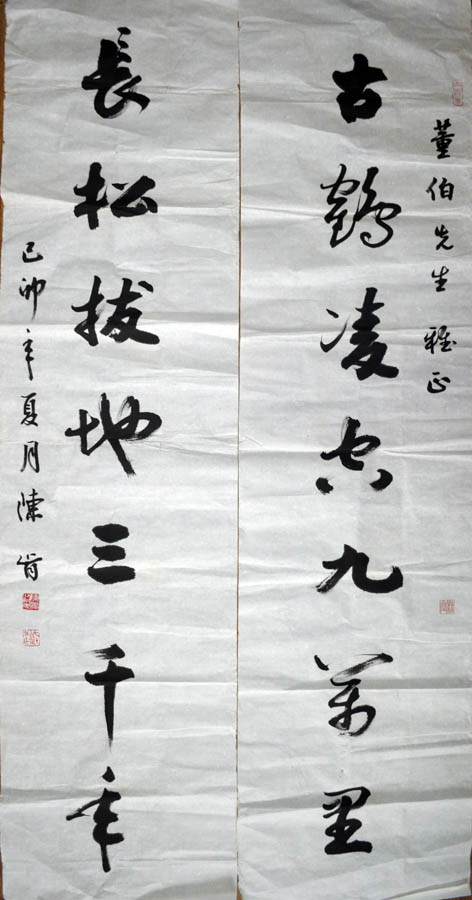 董伯先生雅正
古鶴凌空九萬里
長松拔地三千年
己卯年夏月陳肯